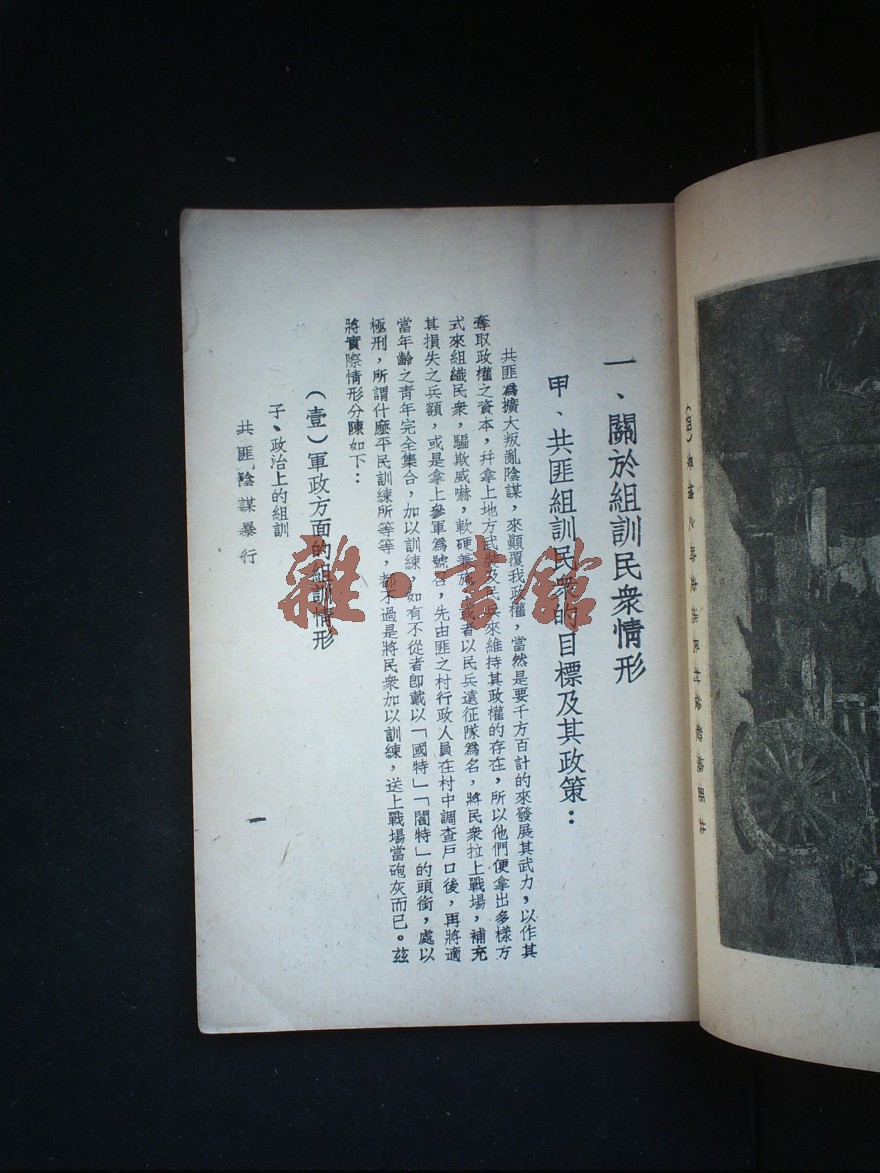 一、關於組訓民衆情形
甲、共匪組訓民衆的目標及其政策：
共匪爲擴大叛亂陰謀，來顚覆我政權，當然是要千方百計的來發展其武力，以作其
奪取政權之資本，幷拿上地方武裝及民兵來維持其政權的存在，所以他們便拿出多樣方
式來組織民衆，騙欺威嚇，軟硬兼施，或者以民兵遠征隊爲名，將民衆拉上戰場，補充
其損失之兵額，或是拿上參軍爲號召，先由匪之村行政人員在村中調查戶口後，再將適
當年齡之靑年完全集合，加以訓練，如有不從者卽戴以「國特」「閻特」的頭銜，處以
極刑，所謂什麽平民訓練所等等，都不過是將民衆加以訓練，送上戰場當砲灰而已。茲
將實際情形分陳如下：
（壹）軍政方面的組訓情形
子、政治上的組訓
共匪陰謀暴行
一
雜·書館